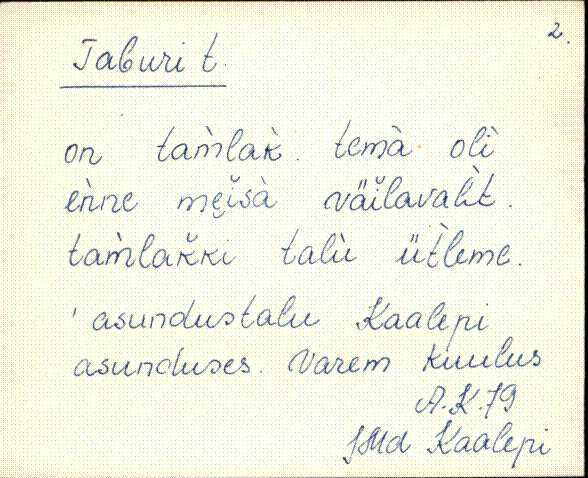 2.
Taburi t.
on tam̀lak̀. temà oli̇̀
eǹne mȩĭsà väĭlavalìt.
tam̀lak̆ki talù üt̀leme.
' asundustalu Kaalepi
asunduses. Varem kuulus
A.K. 79
JMd Kaalepi